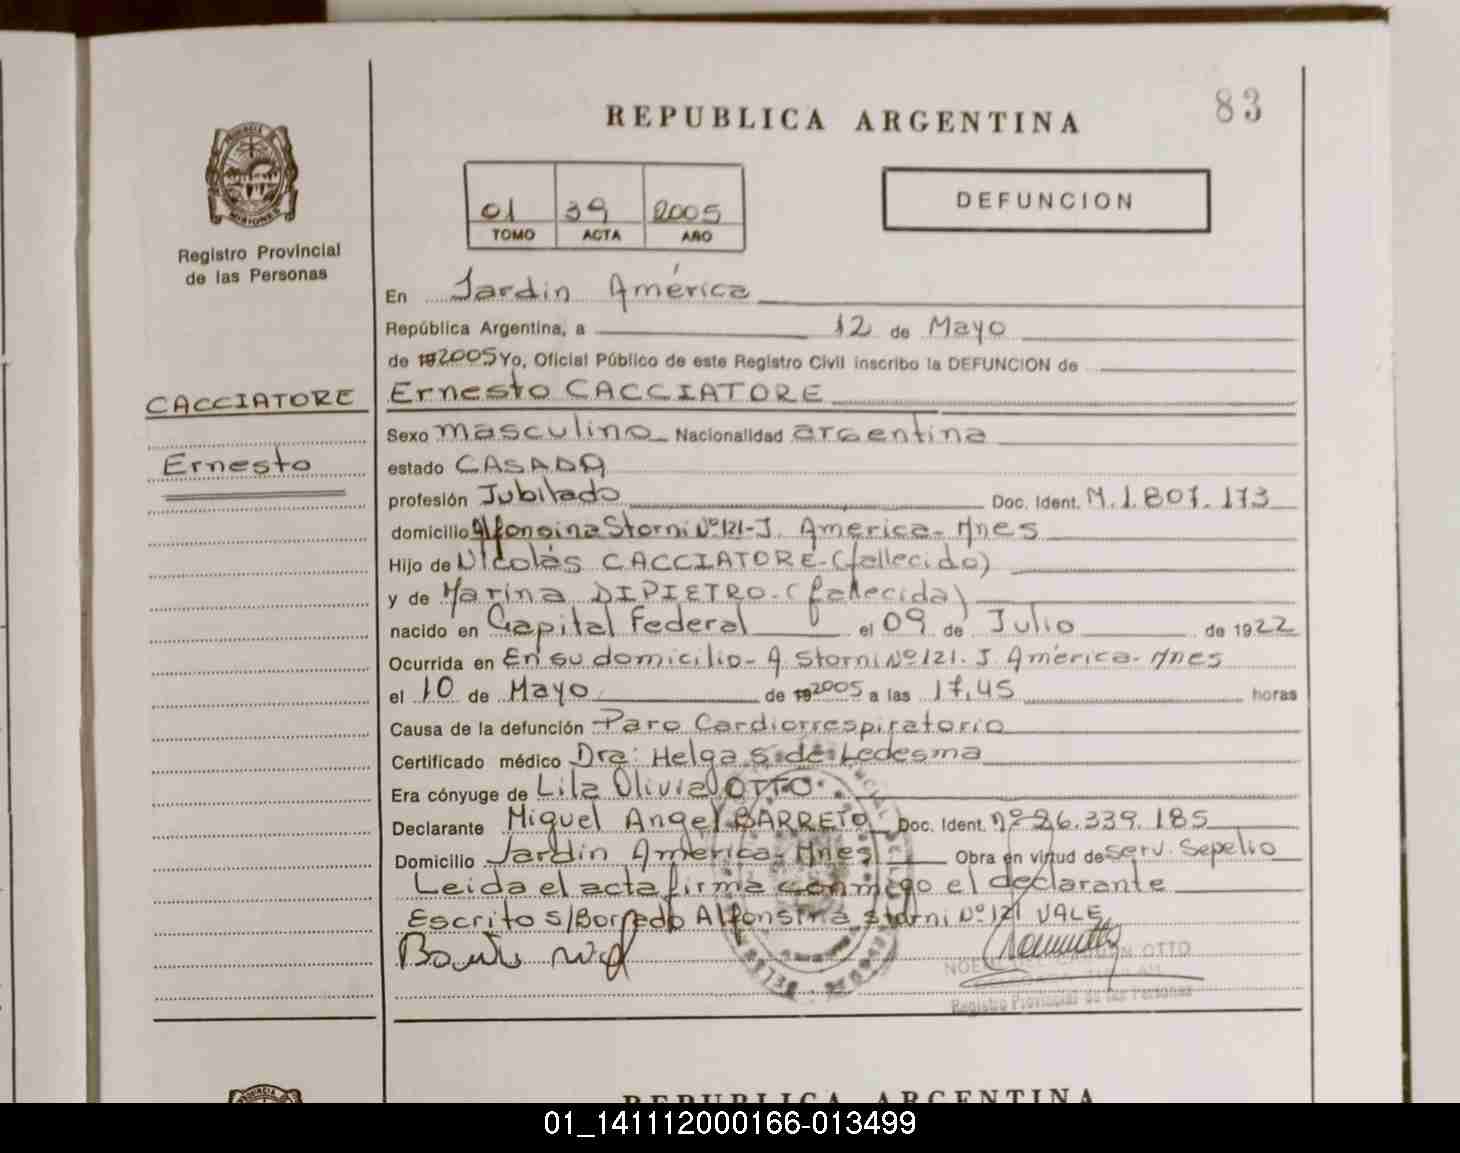 83
REPUBLICA ARGENTINA
PROVINCIA DE
MISIONES
Registro Provincial
de las Personas
01 39 2005
TOMO ACTA AÑO
DEFUNCION
En Jardin América
República Argentina, a 12 de Mayo
de 192005 Yo, Oficial Público de este Registro Civil inscribo la DEFUNCION de
CACCIATORE
Ernesto CACCIATORE
Sexo masculino Nacionalidad argentina
Ernesto
estado CASADO
profesión Jubilado Doc. Ident. M.1.807.173
domicilio Alfonsina Storni Nº121-J. America-Mnes
Hijo de Nicolás CACCIATORE-(fallecido)
y de Marina DIPIETRO-(fallecida)
nacido en Capital Federal el 09 de Julio de 1922
Ocurrida en En su domicilio-A Storni Nº121. J. América-Mnes
el 10 de Mayo de 192005 a las 17,45 horas
Causa de la defunción Paro Cardiorrespiratorio
Certificado médico Dra: Helga S. de Ledesma
Era cónyuge de Lila Olivia OTTO
Declarante Miguel Angel BARRETO Doc. Ident. Nº 26.339.185
Domicilio Jardín América-Mnes Obra en virtud de serv. Sepelio
Leida el acta firma conmigo el declarante
Escrito s/Borrado Alfonsina Storni Nº121 VALE
OTTO
Registro Provincial de las Personas
REPUBLICA ARGENTINA
01_141112000166-013499